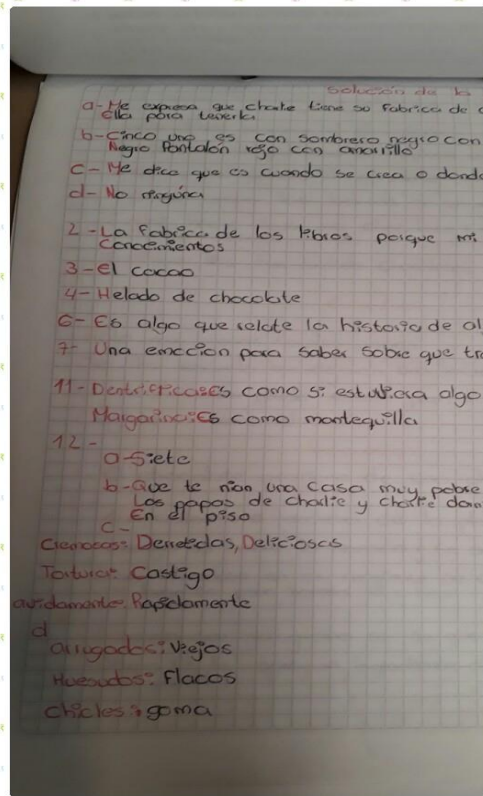 Solución de la
a- Me expresa que, charke tiene so fabrica de c
ella pora tenerla
b- Cinco uno es con sombrero negro con
Negro Pantalón rojo con amarillo
C- Me dice que es cuando se crea o donde
d- No ninguna
2- La fabrica de los libros porque mi
Concimientos
3- el cacao
4- Helado de chocolate
6- Es algo que relate la historia de al
7- Una emccion para saber sobre que tra
11- Dentrificases como si estubiera algo
Margarina: Es como mantequilla
12-
a- Siete
b- Que te nian una casa muy pobre
Los papas de charlie y charlie dom
En el piso
C-
Cremosas: Derretidas, Deliciosas
Tortura: Castigo
avidamente: Rapidamente
d
arrugados: Viejos
Huesudos: Flacos
Chicles: goma